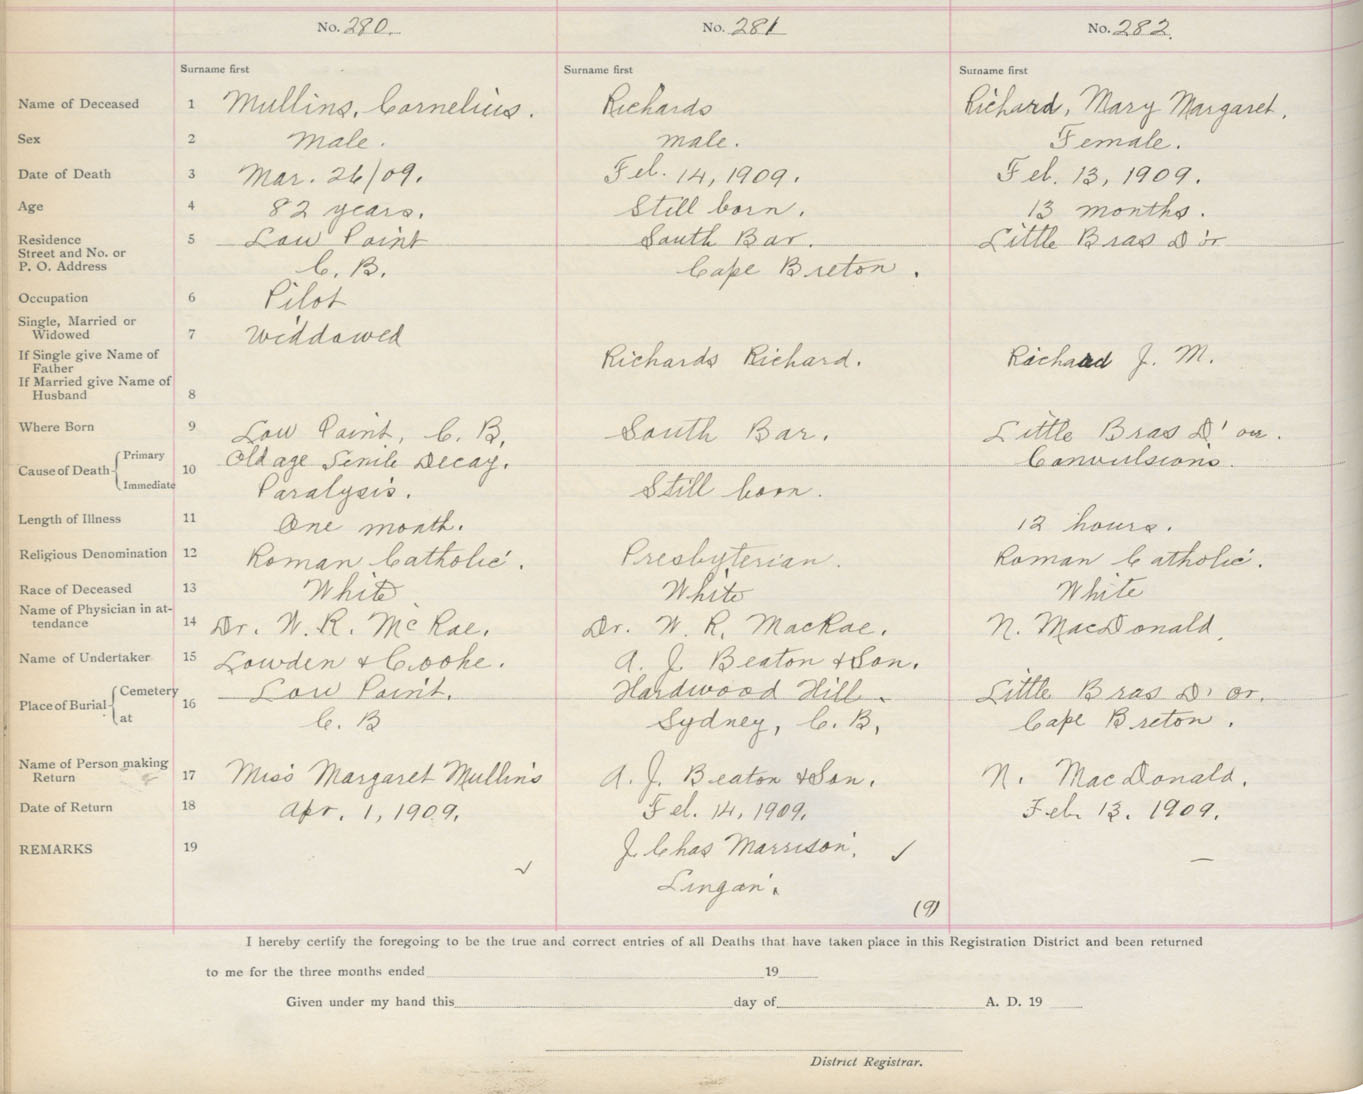 No. 280. No. 281 No. 282.
Surname first Surname first Surname first
Name of Deceased 1 Mullins, Cornelius. Richards Richard, Mary Margaret.
Sex 2 Male. male. Female.
Date of Death 3 Mar. 26/09. Feb. 14, 1909. Feb. 13, 1909.
Age 4 82 years. Still born. 13 months.
Residence 5 Low Point South Bar. Little Bras D'or
Street and No. or
P. O. Address C. B. Cape Breton.
Occupation 6 Pilot
Single, Married or
Widowed 7 Widdowed
If Single give Name of
Father Richards Richard. Richard J. M.
If Married give Name of
Husband 8
Where Born 9 Low Point, C. B. South Bar. Little Bras D'or.
Primary Old age Senile Decay. Convulsions.
Cause of Death 10
Immediate Paralysis. Still born.
Length of Illness 11 One month. 12 hours.
Religious Denomination 12 Roman Catholic. Presbyterian. Roman Catholic.
Race of Deceased 13 White White White
Name of Physician in at-
tendance 14 Dr. W. R. McRae. Dr. W. R. MacRae. N. MacDonald.
Name of Undertaker 15 Lowden & Cooke. A. J. Beaton & Son.
Cemetery Low Point. Hardwood Hill. Little Bras D'or.
Place of Burial 16
at C. B Sydney, C. B. Cape Breton.
Name of Person making
Return 17 Miss Margaret Mullins A. J. Beaton & Son. N. MacDonald.
Date of Return 18 Apr. 1, 1909. Feb. 14, 1909. Feb. 13. 1909.
REMARKS 19 J. Chas Morrison. ✓ —
✓ Lingan.
(9)
I hereby certify the foregoing to be the true and correct entries of all Deaths that have taken place in this Registration District and been returned
to me for the three months ended 19
Given under my hand this day of A. D. 19
District Registrar.